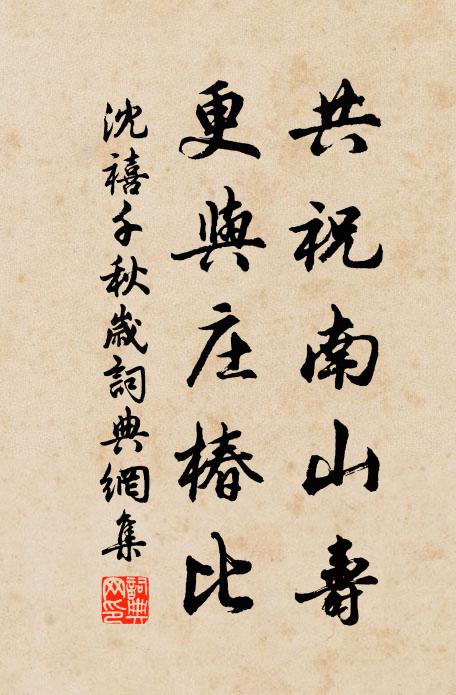 共祝南山壽
更與庄椿比
沈禧千秋歲詞典網集
詞典網印